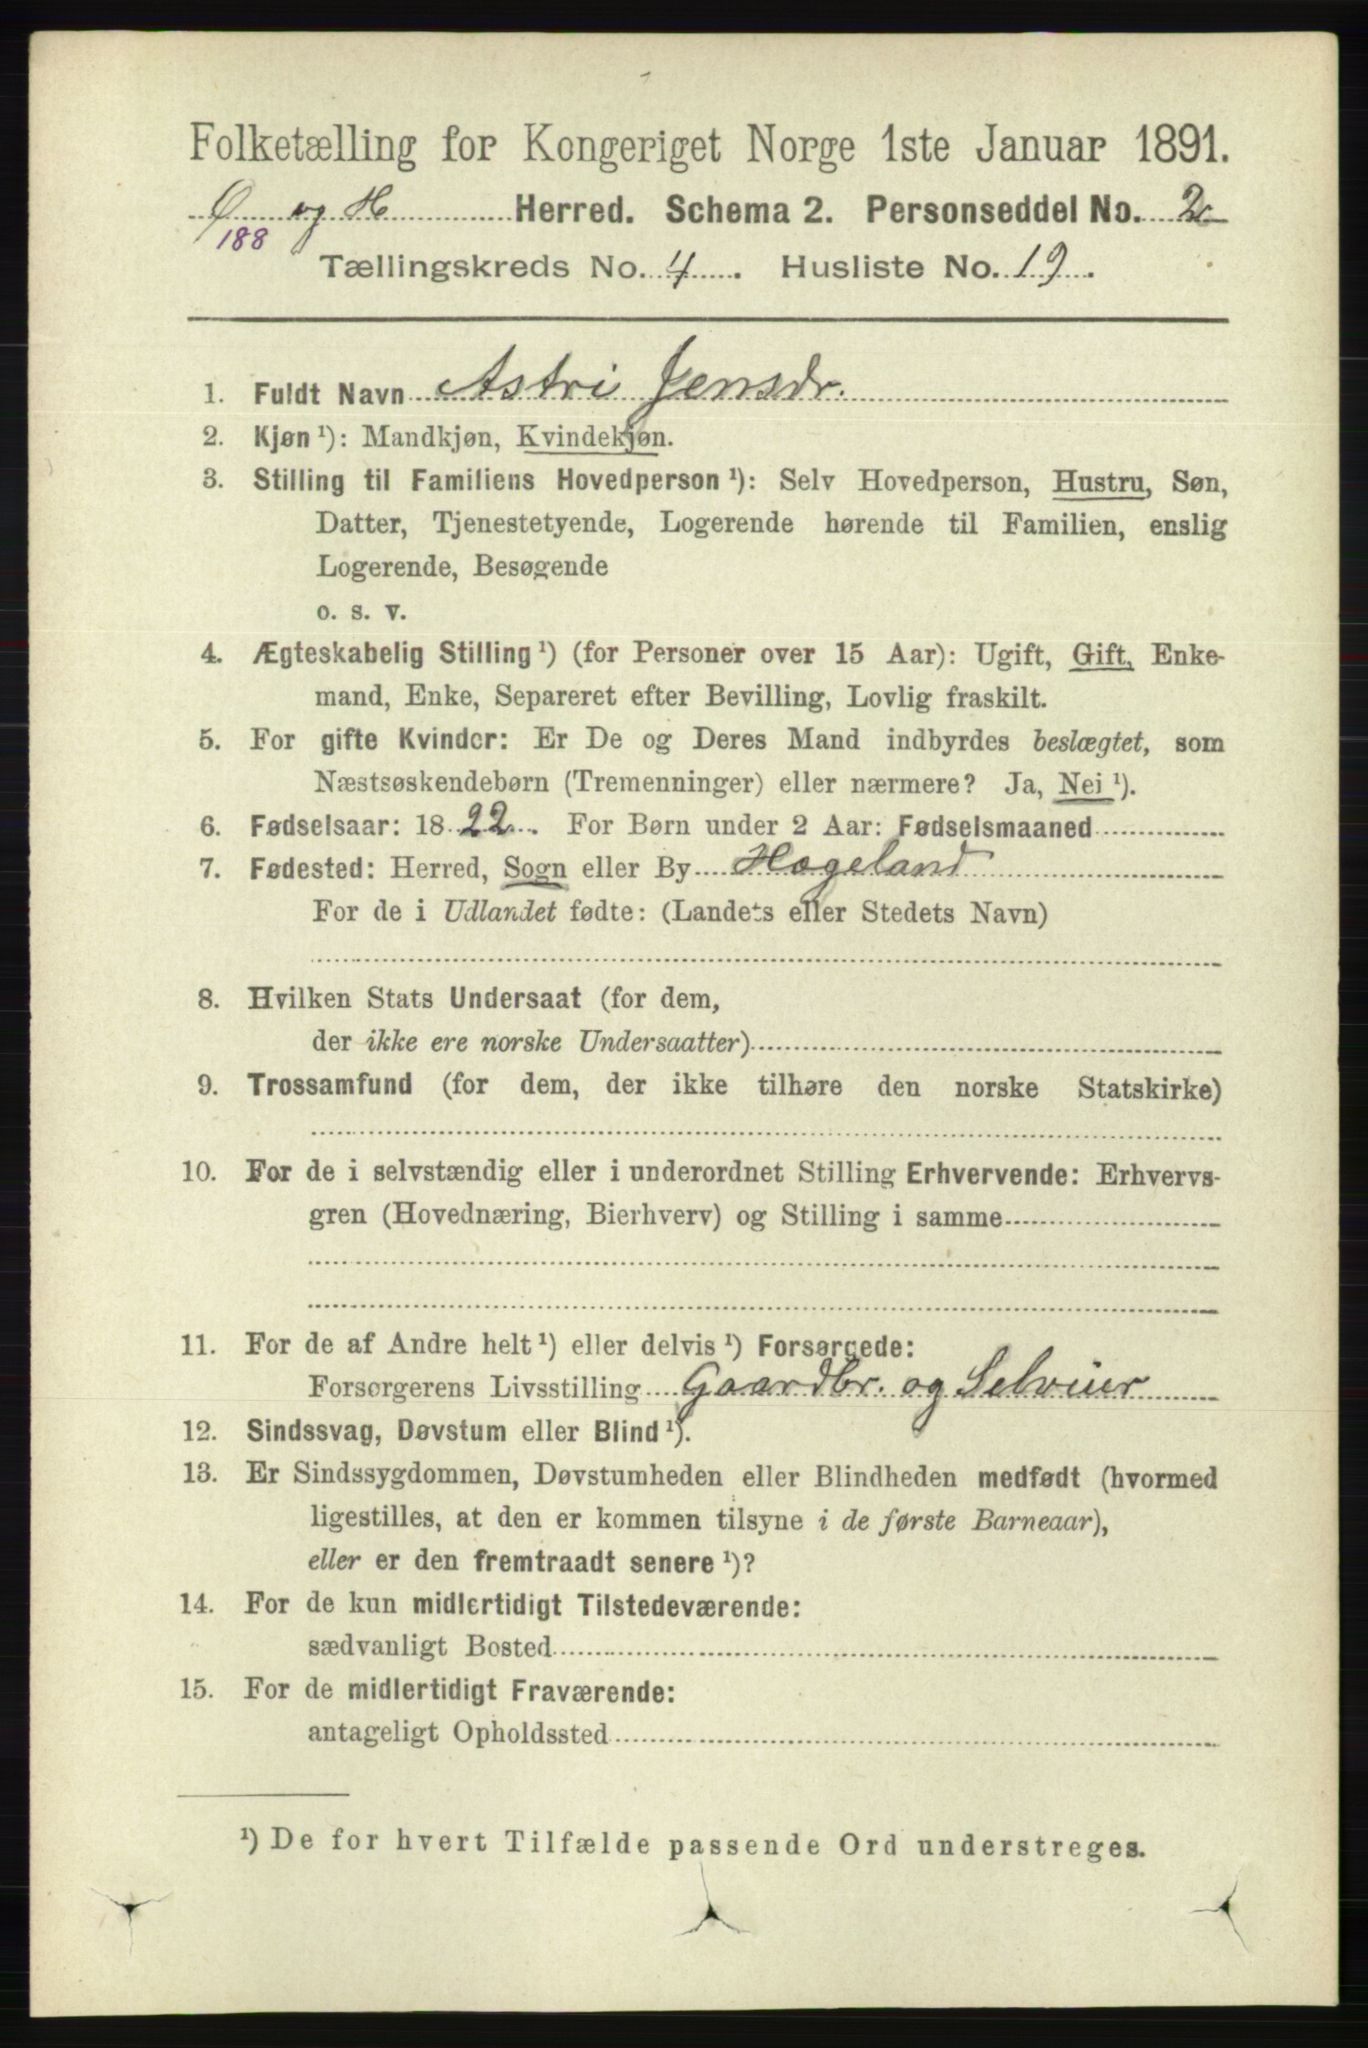 Folketælling for Kongeriget Norge 1ste Januar 1891.
Ø og H Herred. Schema 2. Personseddel No. 2
188
Tællingskreds No. 4. Husliste No. 19.
1. Fuldt Navn Astri Jensdr.
2. Kjøn ¹): Mandkjøn, Kvindekjøn.
3. Stilling til Familiens Hovedperson ¹): Selv Hovedperson, Hustru, Søn,
Datter, Tjenestetyende, Logerende hørende til Familien, enslig
Logerende, Besøgende
o. s. v.
4. Ægteskabelig Stilling ¹) (for Personer over 15 Aar): Ugift, Gift, Enke-
mand, Enke, Separeret efter Bevilling, Lovlig fraskilt.
5. For gifte Kvinder: Er De og Deres Mand indbyrdes beslægtet, som
Næstsøskendebørn (Tremenninger) eller nærmere? Ja, Nei ¹).
6. Fødselsaar: 1822. For Børn under 2 Aar: Fødselsmaaned
7. Fødested: Herred, Sogn eller By Hægeland
For de i Udlandet fødte: (Landets eller Stedets Navn)
8. Hvilken Stats Undersaat (for dem,
der ikke ere norske Undersaatter)
9. Trossamfund (for dem, der ikke tilhøre den norske Statskirke)
10. For de i selvstændig eller i underordnet Stilling Erhvervende: Erhvervs-
gren (Hovednæring, Bierhverv) og Stilling i samme
11. For de af Andre helt ¹) eller delvis ¹) Forsørgede:
Forsørgerens Livsstilling Gaardbr. og Selveier
12. Sindssvag, Døvstum eller Blind ¹).
13. Er Sindssygdommen, Døvstumheden eller Blindheden medfødt (hvormed
ligestilles, at den er kommen tilsyne i de første Barneaar),
eller er den fremtraadt senere ¹)?
14. For de kun midlertidigt Tilstedeværende:
sædvanligt Bosted
15. For de midlertidigt Fraværende:
antageligt Opholdssted
¹) De for hvert Tilfælde passende Ord understreges.